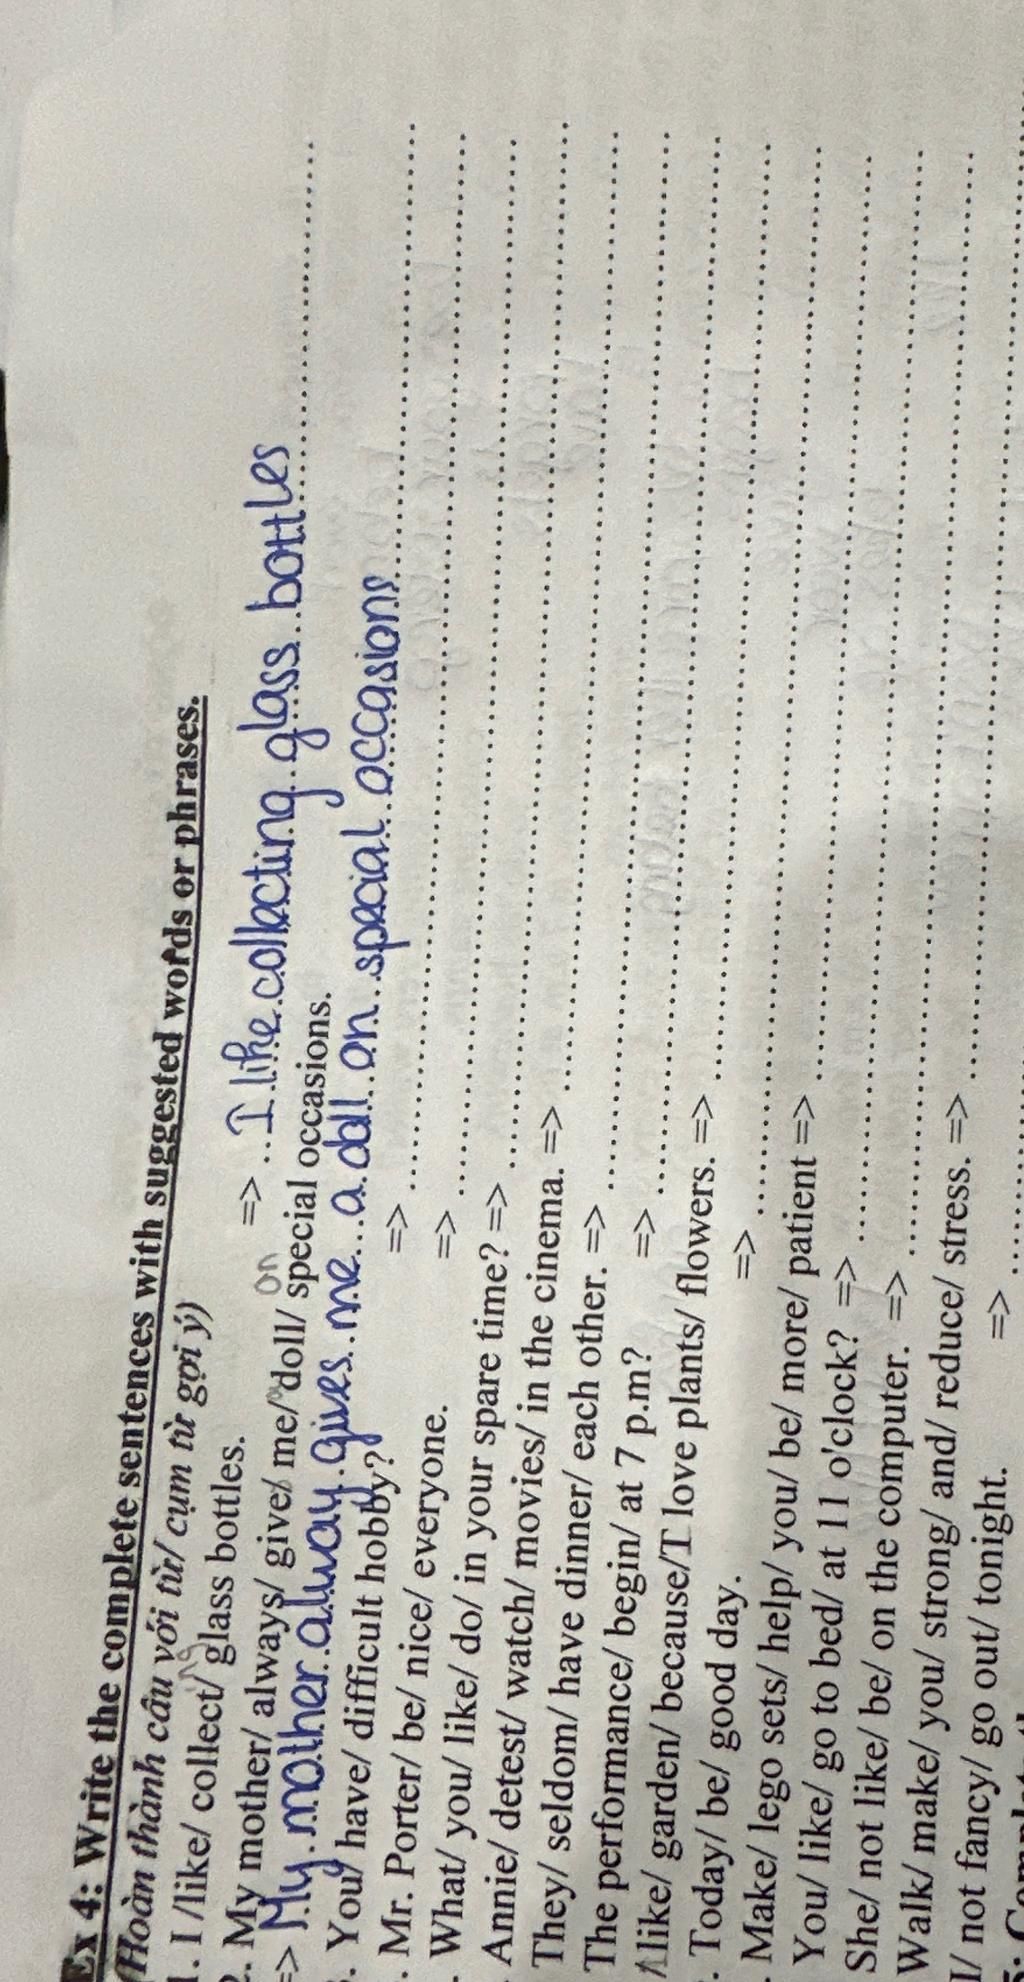 Ex 4: Write the complete sentences with suggested words or phrases.
(Hoàn thành câu với từ/ cụm từ gợi ý)
1. I /like/ collect/ glass bottles. => I like collecting glass bottles
2. My mother/ always/ give/ me/ a doll/ on special occasions.
=> My mother alway gives me a doll on special occasions
. You/ have/ difficult hobby? =>
. Mr. Porter/ be/ nice/ everyone. =>
. What/ you/ like/ do/ in your spare time? =>
. Annie/ detest/ watch/ movies/ in the cinema. =>
They/ seldom/ have dinner/ each other. =>
The performance/ begin/ at 7 p.m? =>
I like/ garden/ because/I love plants/ flowers. =>
. Today/ be/ good day. =>
. Make/ lego sets/ help/ you/ be/ more/ patient =>
You/ like/ go to bed/ at 11 o'clock? =>
She/ not like/ be/ on the computer. =>
Walk/ make/ you/ strong/ and/ reduce/ stress. =>
I/ not fancy/ go out/ tonight. =>